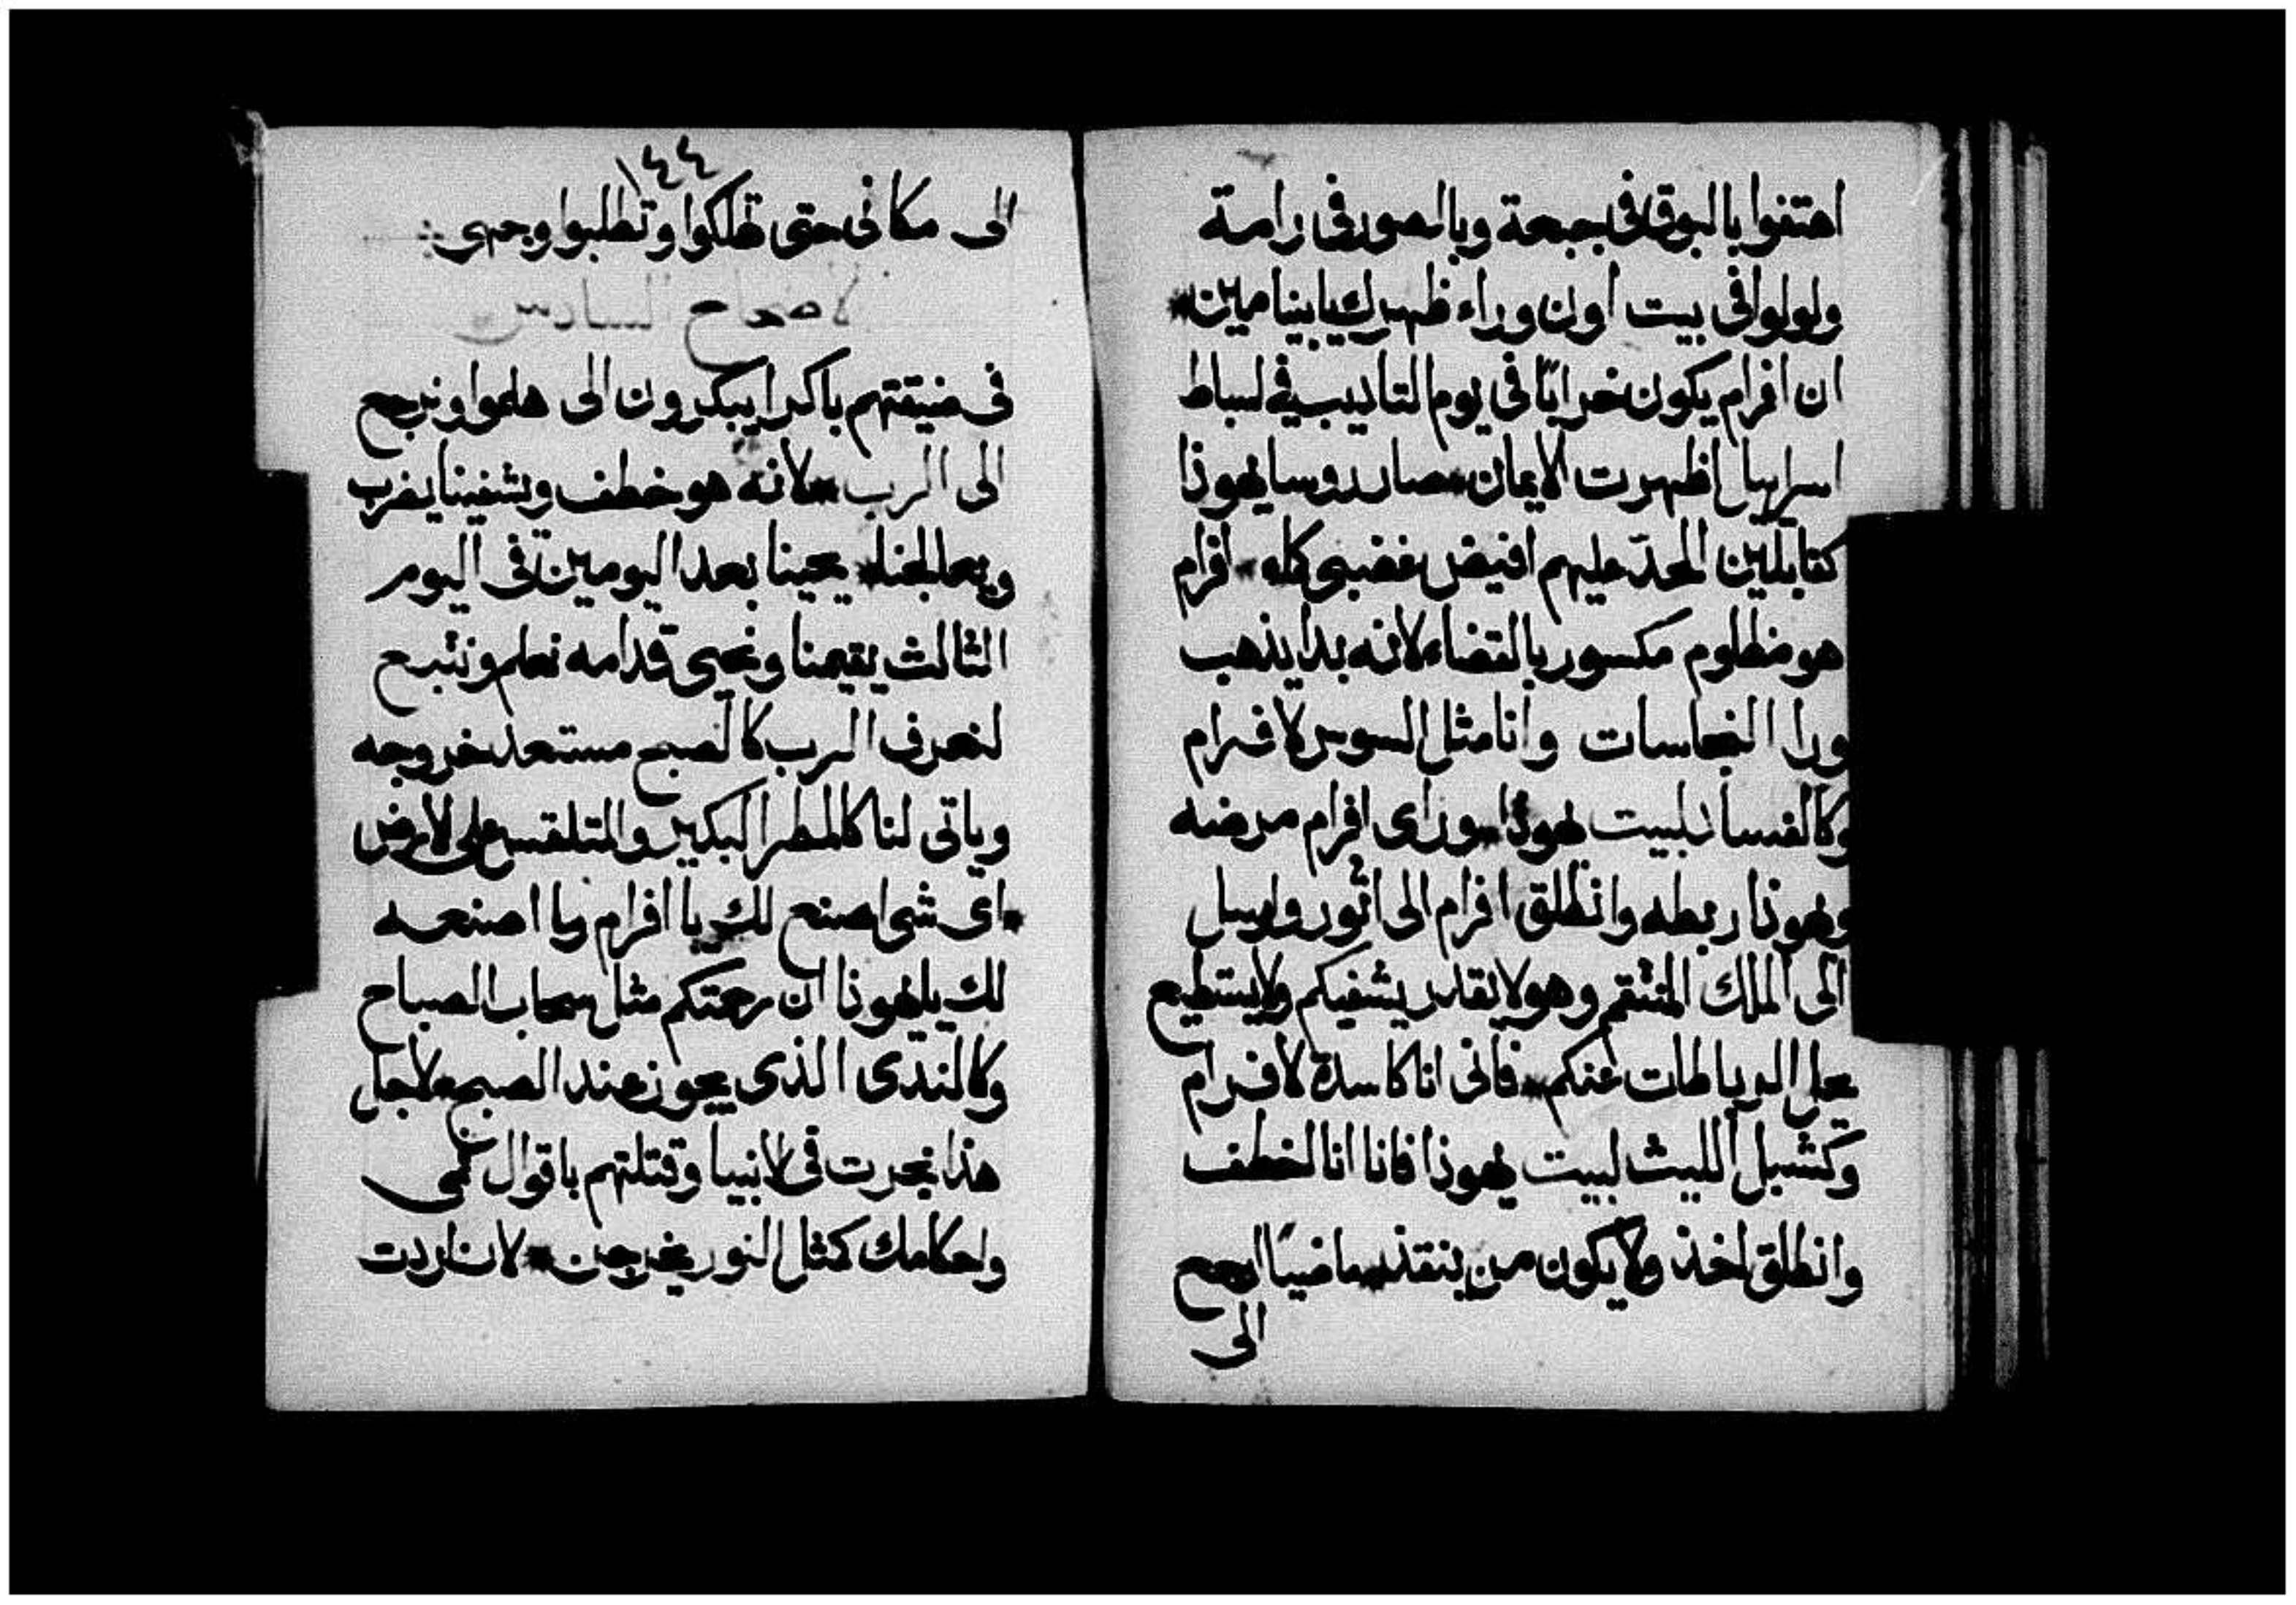 اهتفوا بالبوق في جبعة وبالصور في رامة
ولولوا في بيت اون وراء ظهرك يا بنيامين*
ان افرام يكون خرابًا في يوم التاديب في لسباط
اسراييل اظهرت الايمان* صار روسا يهوذا
كنابلين الحد عليهم افيض غضبي كله* افرام
هو مظلوم مكسور بالقضاء لانه بدا يذهب
ورا النجاسات وانا مثل السوس لافرام
وكالفساد لبيت يهوذا* وراى افرام مرضه
ويهوذا ربطه وانطلق افرام الى اثور وارسل
الى الملك المنتقم وهو لا يقدر يشفيكم ولا يستطيع
يحل الرباطات عنكم* فاني انا كاسدة لافرام
وكشبل الليث لبيت يهوذا فانا انا لخطف
وانطلق اخذ ولا يكون من ينقذ* ماضيًا ارجع
الى
١٤٤
الى مكاني حتى تهلكوا وتطلبوا وجهي
لاصحاح السادس
في ضيقتهم باكرا يبكرون الى هلموا ونرجع
الى الرب* لانه هو خطف ويشفينا يضرب
ويعالجنا* يحيينا بعد اليومين في اليوم
الثالث يقيمنا ونحيى قدامه نعلم ونتبع
لنعرف الرب كالصبح مستعد خروجه
وياتي لنا كالمطر البكير والمتلقس على لارض
*اي شي اصنع لك يا افرام وما اصنعه
لك يا يهوذا ان رحمتكم مثل سحاب الصباح
وكالندى الذي يجوز عند الصبح* لاجل
هذا نجرت في لانبيا وقتلتهم باقوال فمي
واحكامك كمثل النور يخرجن* لان اردت